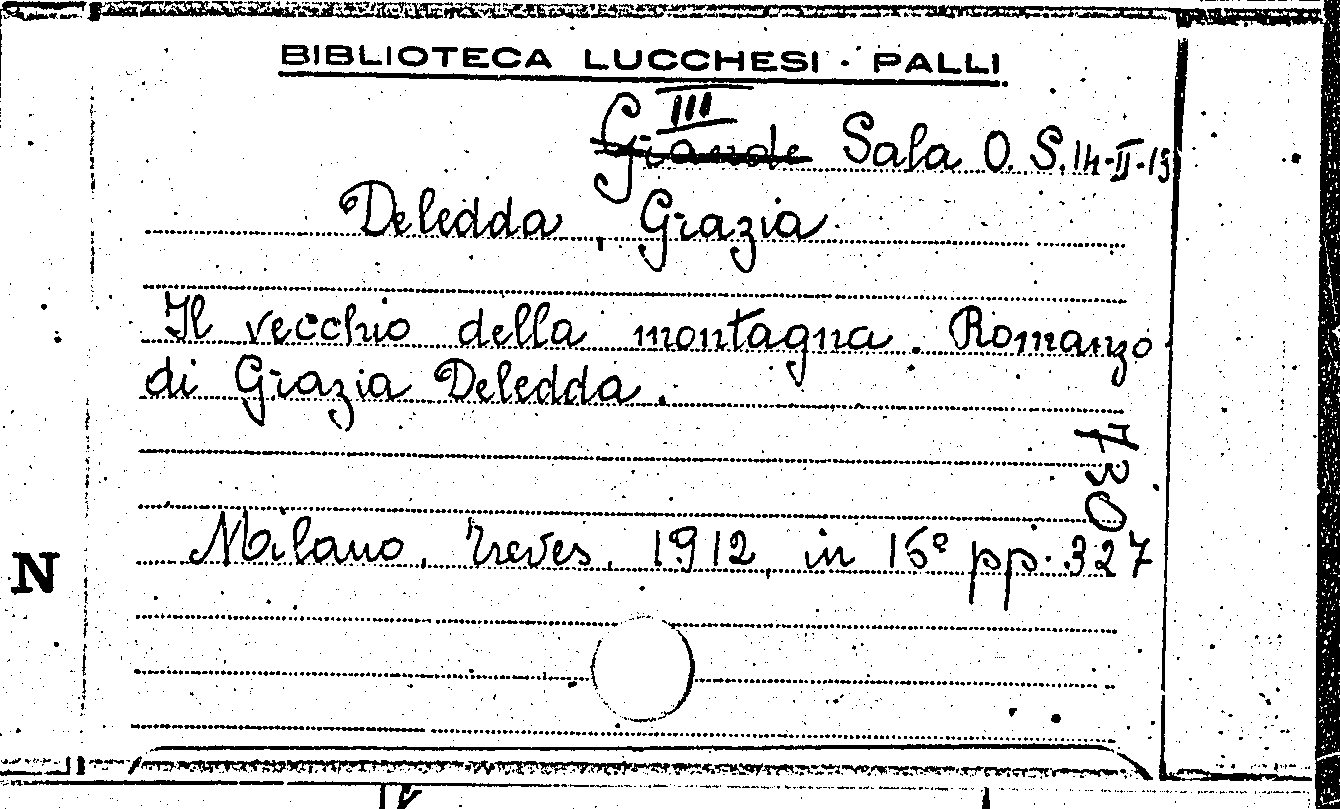 BIBLIOTECA LUCCHESI · PALLI
III
Grande Sala O. S. 14-II-13
Deledda, Grazia
Il vecchio della montagna. Romanzo
di Grazia Deledda.
730
Milano, Treves, 1912, in 16º pp. 327
N